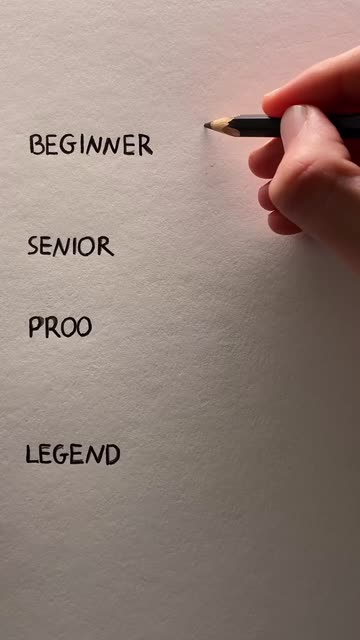 BEGINNER
SENIOR
PROO
LEGEND